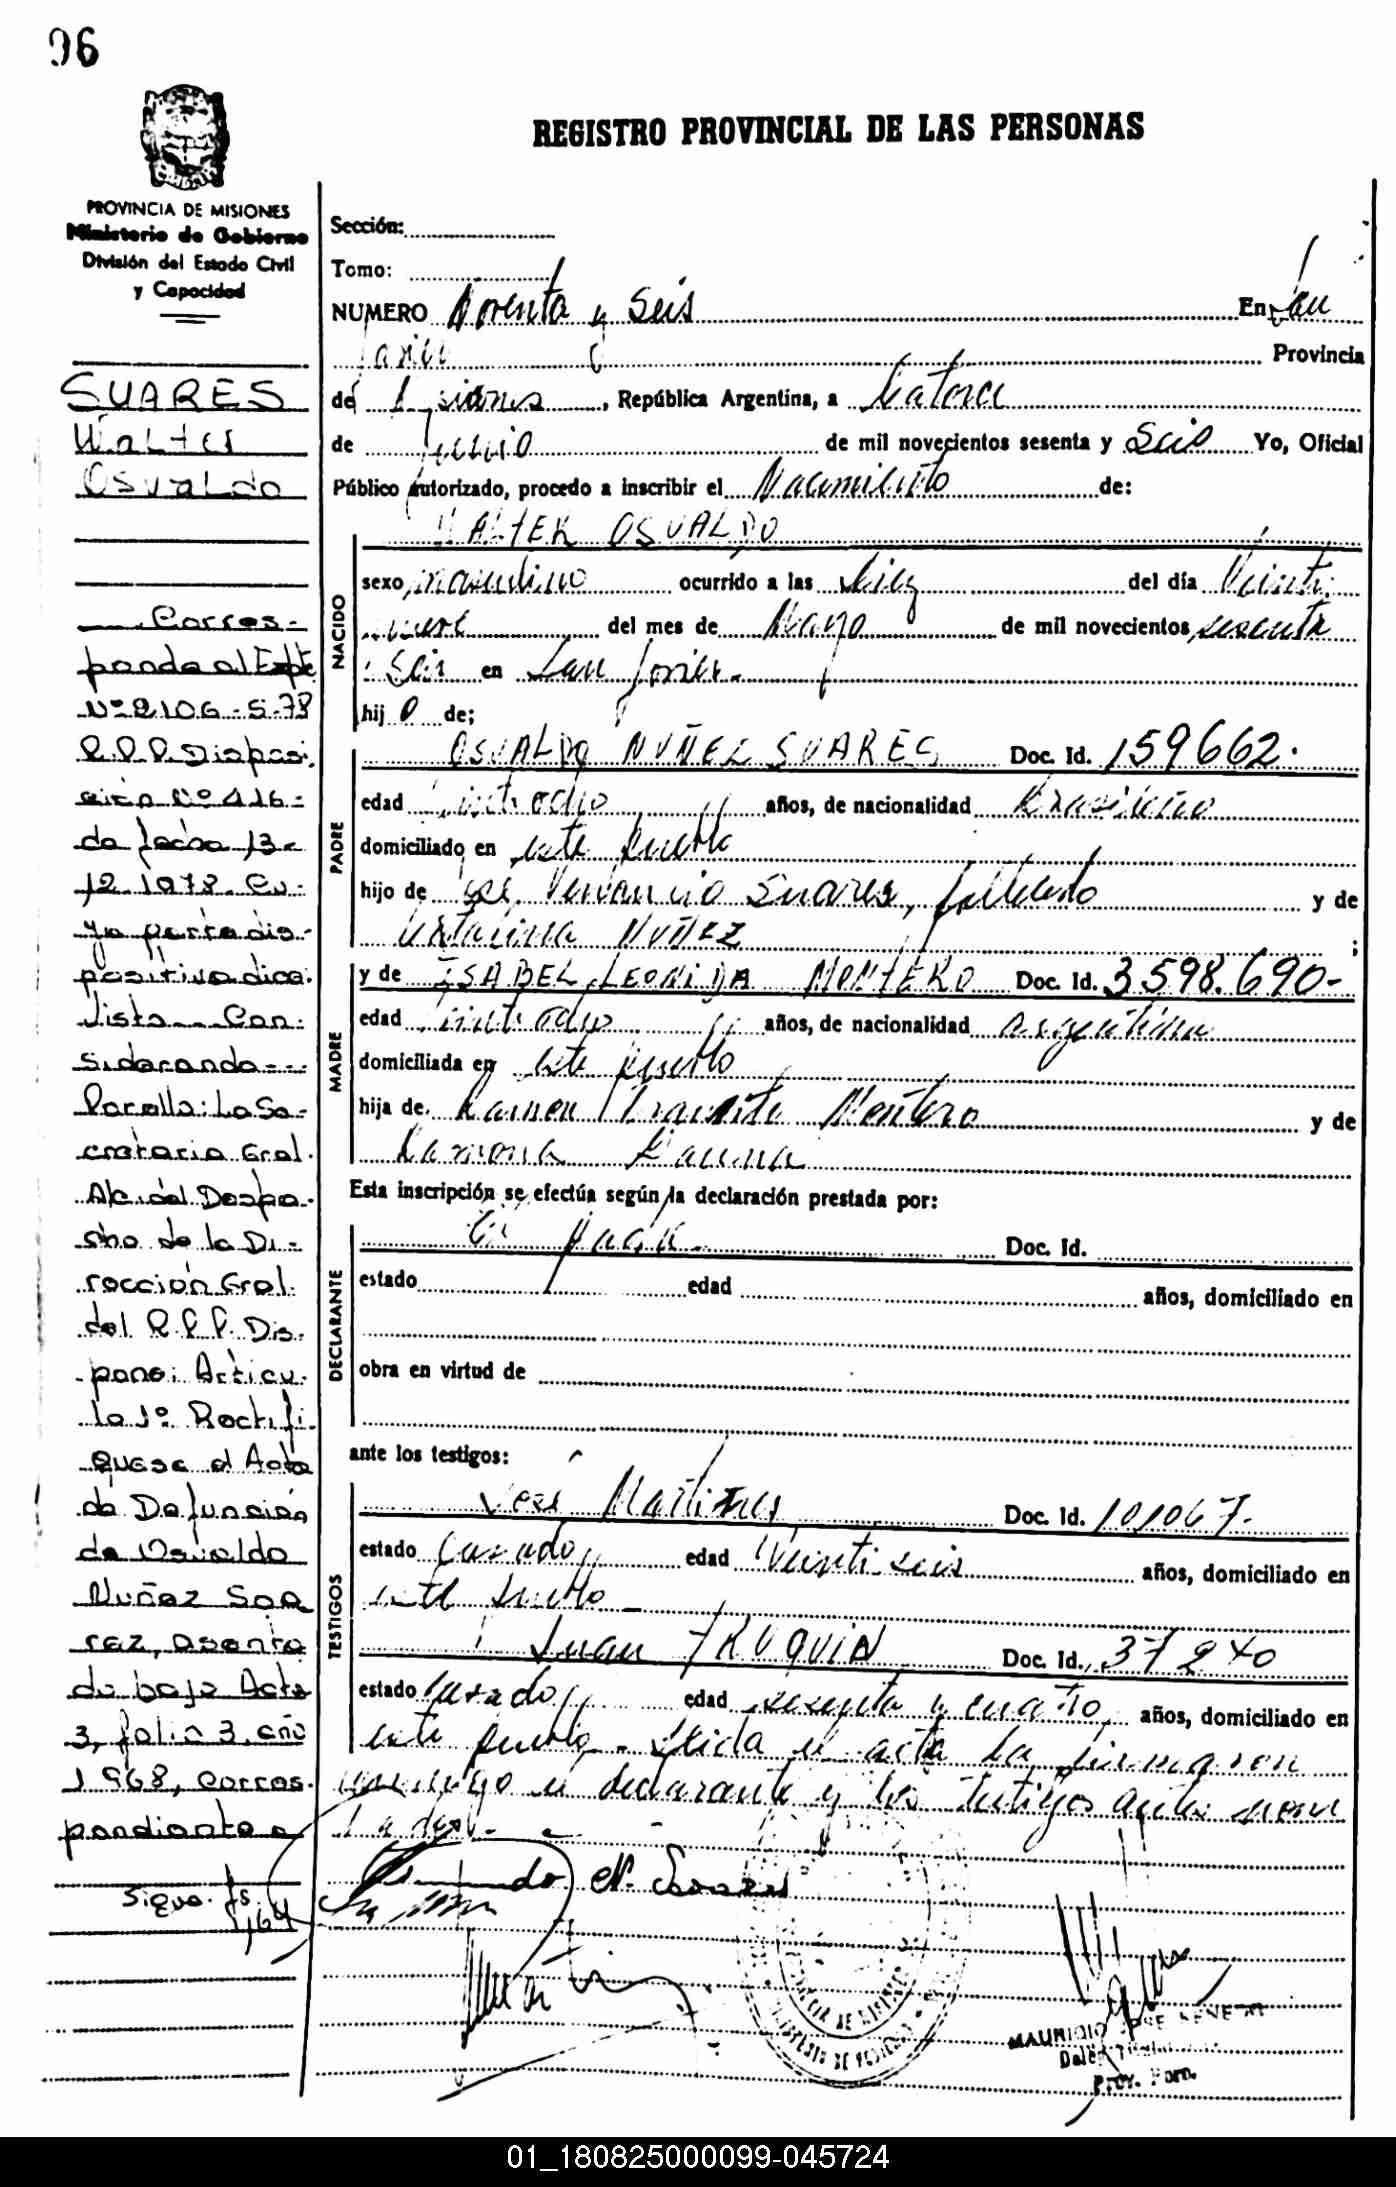 96
REGISTRO PROVINCIAL DE LAS PERSONAS
PROVINCIA DE MISIONES
Ministerio de Gobierno
División del Estado Civil
y Capacidad
SUARES
Walter
Osvaldo
Corres-
ponde al Expte
Nº 2106-S-78
R.P.P. Disposi-
ción Nº 416-
de fecha 13-
12 1978. Cu-
ya parte dis-
positiva dice:
Visto Con-
siderando---
Por ello: La Se-
cretaria Gral.
A/c del Despa-
cho de la Di-
rección Gral.
del R.P.P. Dis-
pone: Articu-
lo 1º Rectifi-
quese el Acta
de Defunción
de Osvaldo
Nuñez Soa
rez, asenta
da bajo Acta
3, folio 3, año
1968, corres-
pondiente a
Sigue fs.
Sección:
Tomo:
NUMERO Noventa y Seis En San
Javier Provincia
de Misiones, República Argentina, a Catorce
de Junio de mil novecientos sesenta y Seis Yo, Oficial
Público autorizado, procedo a inscribir el Nacimiento de:
WALTER OSVALDO
NACIDO
sexo masculino ocurrido a las diez del día Veinti
nueve del mes de Mayo de mil novecientos sesenta
Seis en San Javier.-
hij o de;
PADRE
OSVALDO NUÑEZ SUARES Doc. Id. 159662.
edad Veintiocho años, de nacionalidad Brasileño
domiciliado en este pueblo
hijo de José Venancio Suares, fallecido y de
Catalina Nuñez ;
MADRE
y de ISABEL LEONIDA MONTERO Doc. Id. 3.598.690-
edad Veintiocho años, de nacionalidad argentina
domiciliada en este pueblo
hija de Ramón Transito Montero y de
Ramona Gauna
Esta inscripción se efectúa según la declaración prestada por:
DECLARANTE
El Padre.- Doc. Id.
estado edad años, domiciliado en
obra en virtud de
ante los testigos:
TESTIGOS
José Martines Doc. Id. 101067.-
estado Casado edad Veintiseis años, domiciliado en
este pueblo -
Juan TRUQUIN Doc. Id. 37240
estado Casado edad sesenta y cuatro años, domiciliado en
este pueblo.- Leida el acta la firmaron
conmigo el declarante y los testigos antes nom
brados.-
N. Soares
MAURICIO JOSE
01_180825000099-045724